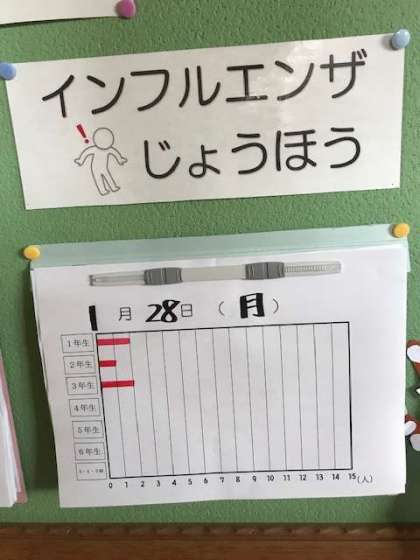 インフルエンザ
じょうほう
1月28日（月）
1年生
2年生
3年生
4年生
5年生
6年生
0 1 2 3 4 5 6 7 8 9 10 11 12 13 14 15(人)